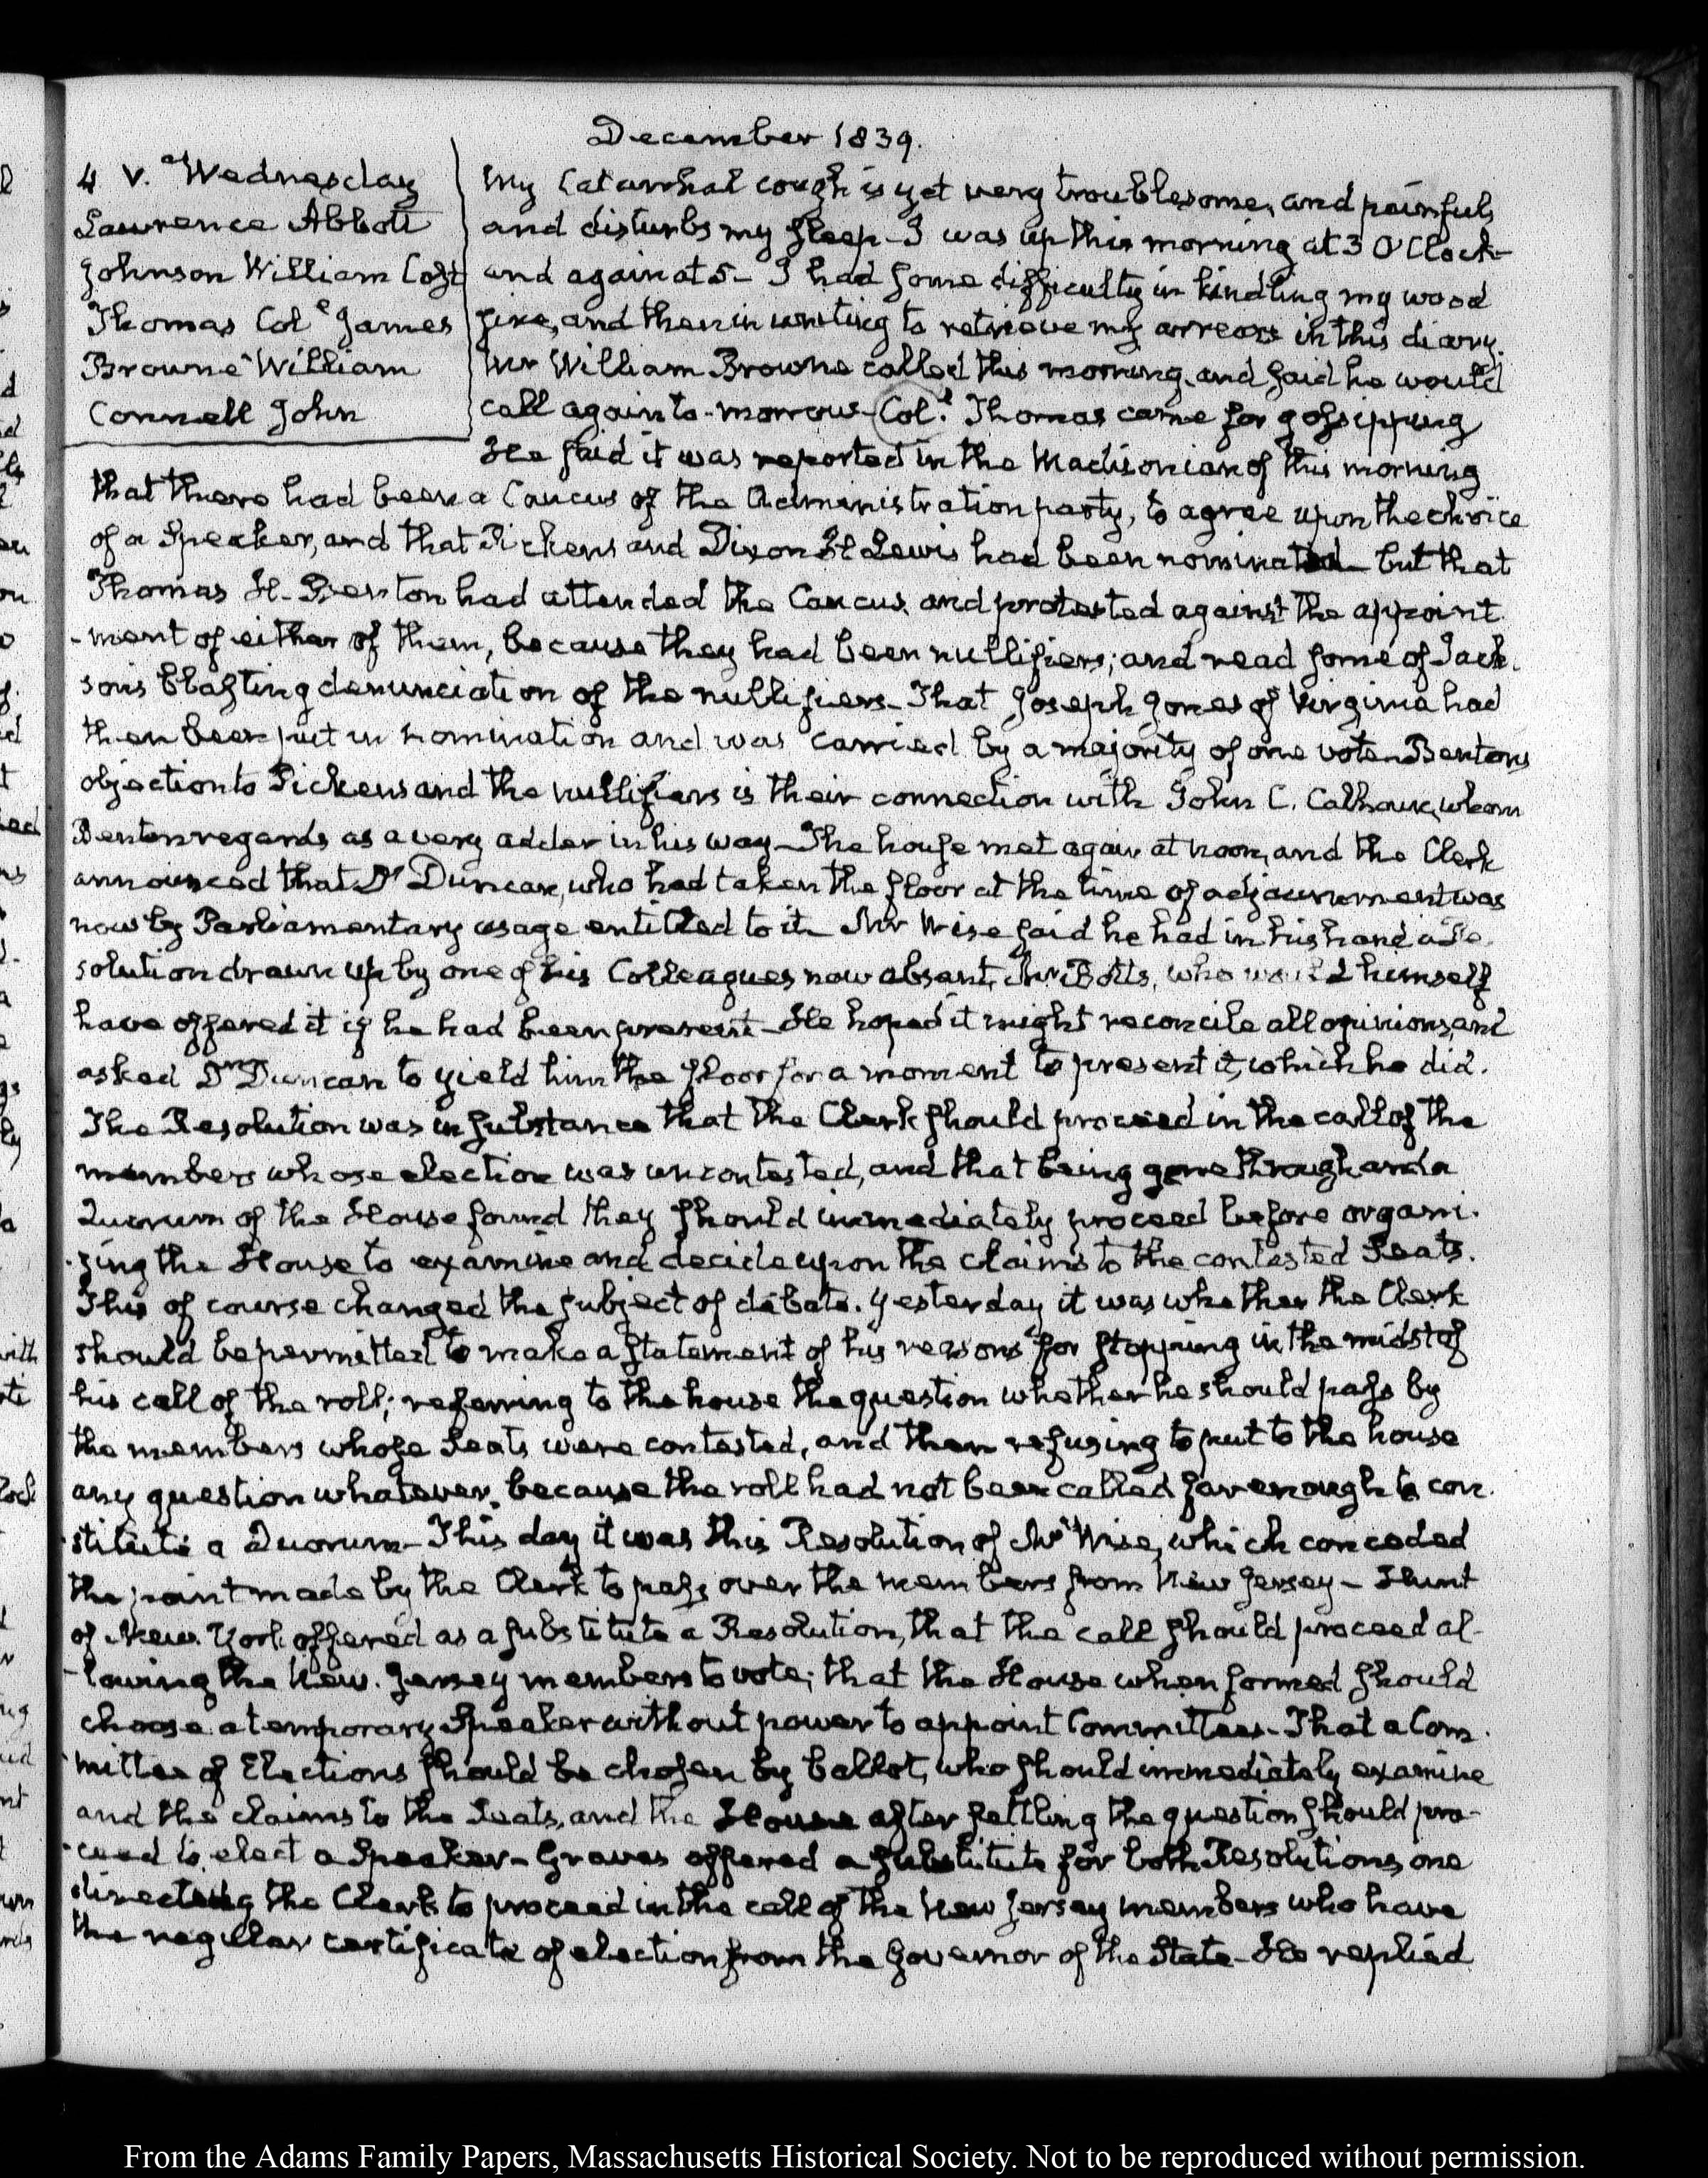 December 1839.
4. V. Wednesday
Lawrence Abbott
Johnson William Cost
Thomas Col.e James
Browne William
Connell John
My Catarrhal cough is yet very troublesome, and painful,
and disturbs my sleep - I was up this morning at 3 O'Clock -
and again at 5 - I had some difficulty in kindling my wood
fire, and then in writing to retrieve my arrears in this diary.
Mr William Browne called this morning, and said he would
call again to-morrow - Col.l Thomas came for gossipping
He said it was reported in the Madisonian of this morning
that there had been a Caucus of the Administration party, to agree upon the choice
of a Speaker, and that Pickens and Dixon H Lewis had been nominated - but that
Thomas H. Benton had attended the Caucus, and protested against the appoint
-ment of either of them, because they had been nullifiers; and read some of Jack.
son's blasting denunciation of the nullifiers - That Joseph Jones of Virginia had
then been put in nomination and was carried by a majority of one vote - Bentons
objection to Pickens and the nullifiers is their connection with John C. Calhoun, whom
Benton regards as a very adder in his way - The house met again at noon, and the Clerk
announced that Dr Duncan, who had taken the floor at the time of adjournment was
now by Parliamentary usage entitled to it - Mr Wise said he had in his hand a Re.
solution drawn up by one of his Colleagues now absent, Mr Botts, who would himself
have offered it if he had been present - He hoped it might reconcile all opinions, and
asked Dr Duncan to yield him the floor for a moment to present it, which he did.
The Resolution was in substance that the Clerk should proceed in the call of the
members whose election was uncontested, and that being gone through and a
Quorum of the House found they should immediately proceed before organi.
-zing the House to examine and decide upon the claims to the contested Seats.
This of course changed the subject of debate. Yesterday it was whether the Clerk
should be permitted to make a statement of his reasons for stopping in the midst of
his call of the roll; referring to the house the question whether he should pass by
the members whose Seats were contested, and then refusing to put to the house
any question whatever, because the roll had not been called far enough to con.
-stitute a Quorum - This day it was this Resolution of Mr Wise, which conceded
the point made by the Clerk to pass over the members from New Jersey - Hunt
of New York offered as a substitute a Resolution, that the call should proceed al-
-lowing the New. Jersey members to vote; that the House when formed should
choose a temporary Speaker without power to appoint Committees - That a Com.
-mittee of Elections should be chosen by ballot, who should immediately examine
and the claims to the Seats, and the House after settling the question should pro-
-ceed to elect a Speaker - Graves offered a substitute for both Resolutions, one
directing the Clerk to proceed in the call of the New Jersey members who have
the regular certificate of election from the Governor of the State - He replied
From the Adams Family Papers, Massachusetts Historical Society. Not to be reproduced without permission.